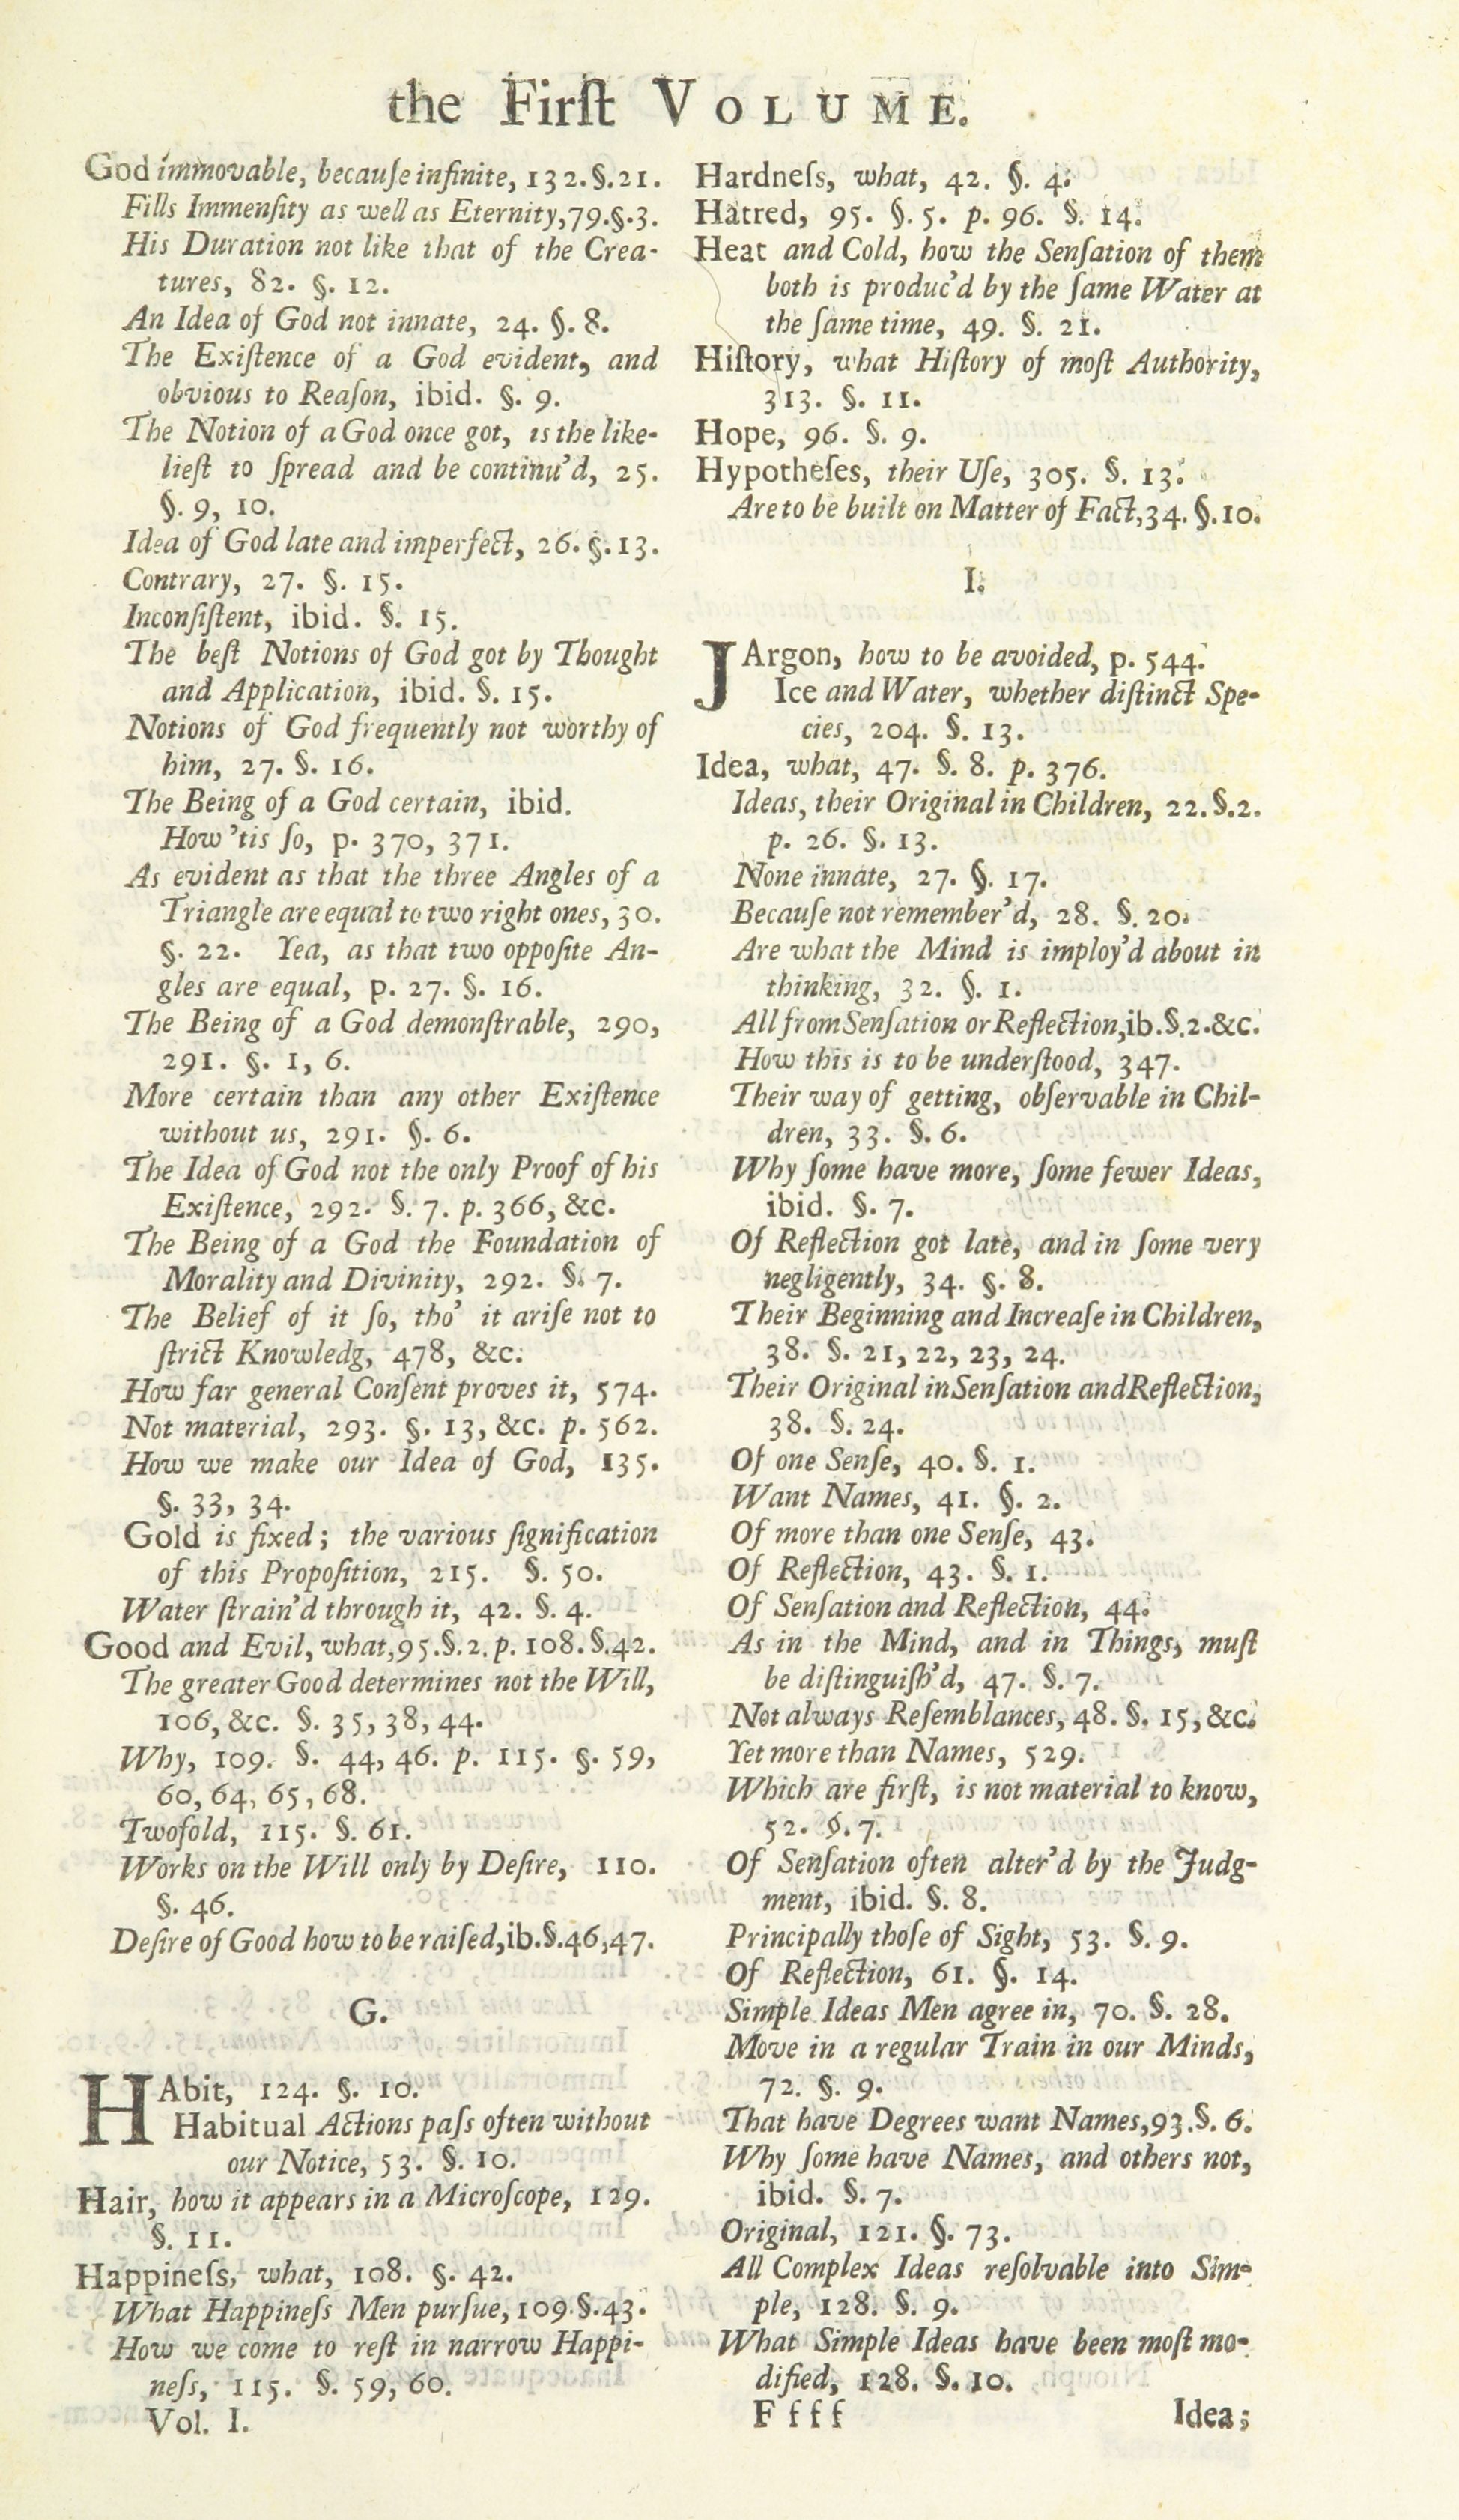 the Firſt VOLUME.
God immovable, becauſe infinite, 132. §. 21.
Fills Immenſity as well as Eternity, 79. §. 3.
His Duration not like that of the Crea-
tures, 82. §. 12.
An Idea of God not innate, 24. §. 8.
The Exiſtence of a God evident, and
obvious to Reaſon, ibid. §. 9.
The Notion of a God once got, is the like-
lieſt to ſpread and be continu'd, 25.
§. 9, 10.
Idea of God late and imperfect, 26. §. 13.
Contrary, 27. §. 15.
Inconſiſtent, ibid. §. 15.
The beſt Notions of God got by Thought
and Application, ibid. §. 15.
Notions of God frequently not worthy of
him, 27. §. 16.
The Being of a God certain, ibid.
How 'tis ſo, p. 370, 371.
As evident as that the three Angles of a
Triangle are equal to two right ones, 30.
§. 22. Yea, as that two oppoſite An-
gles are equal, p. 27. §. 16.
The Being of a God demonſtrable, 290,
291. §. 1, 6.
More certain than any other Exiſtence
without us, 291. §. 6.
The Idea of God not the only Proof of his
Exiſtence, 292. §. 7. p. 366, &c.
The Being of a God the Foundation of
Morality and Divinity, 292. §. 7.
The Belief of it ſo, tho' it ariſe not to
ſtrict Knowledg, 478, &c.
How far general Conſent proves it, 574.
Not material, 293. §. 13, &c. p. 562.
How we make our Idea of God, 135.
§. 33, 34.
Gold is fixed; the various ſignification
of this Propoſition, 215. §. 50.
Water ſtrain'd through it, 42. §. 4.
Good and Evil, what, 95. §. 2. p. 108. §. 42.
The greater Good determines not the Will,
106, &c. §. 35, 38, 44.
Why, 109. §. 44, 46. p. 115. §. 59,
60, 64, 65, 68.
Twofold, 115. §. 61.
Works on the Will only by Deſire, 110.
§. 46.
Deſire of Good how to be raiſed, ib. §. 46, 47.
G.
HAbit, 124. §. 10.
Habitual Actions paſs often without
our Notice, 53. §. 10.
Hair, how it appears in a Microſcope, 129.
§. 11.
Happineſs, what, 108. §. 42.
What Happineſs Men purſue, 109. §. 43.
How we come to reſt in narrow Happi-
neſs, 115. §. 59, 60.
Vol. I.
Hardneſs, what, 42. §. 4.
Hatred, 95. §. 5. p. 96. §. 14.
Heat and Cold, how the Senſation of them
both is produc'd by the ſame Water at
the ſame time, 49. §. 21.
Hiſtory, what Hiſtory of moſt Authority,
313. §. 11.
Hope, 96. §. 9.
Hypotheſes, their Uſe, 305. §. 13.
Are to be built on Matter of Fact, 34. §. 10.
I.
JArgon, how to be avoided, p. 544.
Ice and Water, whether diſtinct Spe-
cies, 204. §. 13.
Idea, what, 47. §. 8. p. 376.
Ideas, their Original in Children, 22. §. 2.
p. 26. §. 13.
None innate, 27. §. 17.
Becauſe not remember'd, 28. §. 20.
Are what the Mind is imploy'd about in
thinking, 32. §. 1.
All from Senſation or Reflection, ib. §. 2. &c.
How this is to be underſtood, 347.
Their way of getting, obſervable in Chil-
dren, 33. §. 6.
Why ſome have more, ſome fewer Ideas,
ibid. §. 7.
Of Reflection got late, and in ſome very
negligently, 34. §. 8.
Their Beginning and Increaſe in Children,
38. §. 21, 22, 23, 24.
Their Original in Senſation and Reflection,
38. §. 24.
Of one Senſe, 40. §. 1.
Want Names, 41. §. 2.
Of more than one Senſe, 43.
Of Reflection, 43. §. 1.
Of Senſation and Reflection, 44.
As in the Mind, and in Things, muſt
be diſtinguiſh'd, 47. §. 7.
Not always Reſemblances, 48. §. 15, &c.
Yet more than Names, 529.
Which are firſt, is not material to know,
52. §. 7.
Of Senſation often alter'd by the Judg-
ment, ibid. §. 8.
Principally thoſe of Sight, 53. §. 9.
Of Reflection, 61. §. 14.
Simple Ideas Men agree in, 70. §. 28.
Move in a regular Train in our Minds,
72. §. 9.
That have Degrees want Names, 93. §. 6.
Why ſome have Names, and others not,
ibid. §. 7.
Original, 121. §. 73.
All Complex Ideas reſolvable into Sim-
ple, 128. §. 9.
What Simple Ideas have been moſt mo-
dified, 128. §. 10.
F f f f Idea;